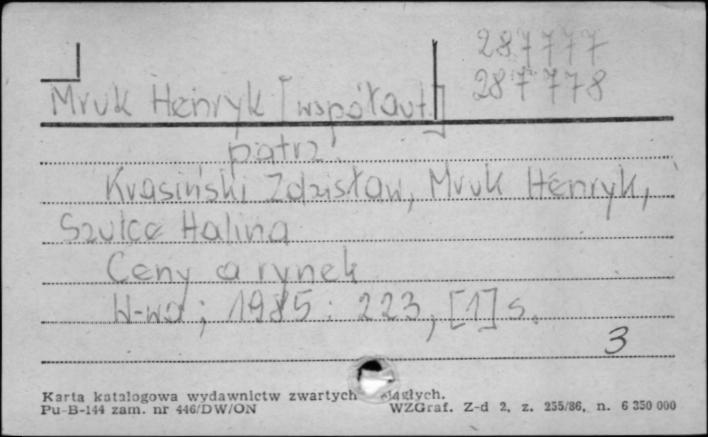 287777
287778
Mruk Henryk [współaut.]
patrz:
Krasiński Zdzisław, Mruk Henryk,
Szulce Halina
Ceny a rynek
W-wa ; 1985 : 223, [1] s.
3
Karta katalogowa wydawnictw zwartych ciągłych.
Pu-B-144 zam. nr 446/DW/ON WZGraf. Z-d 2, z. 255/86, n. 6 350 000